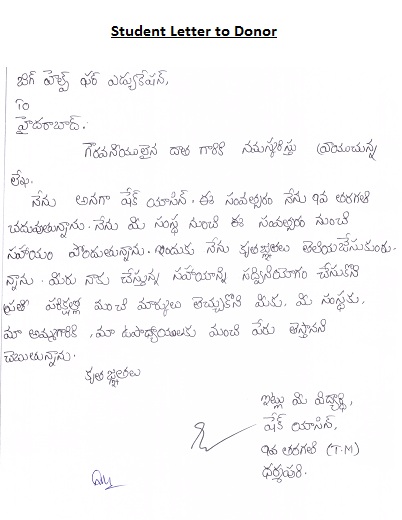 Student Letter to Donor
బిగ్ హెల్ప్ ఫర్ ఎడ్యుకేషన్,
To
హైదరాబాద్.
గౌరవనీయులైన దాత గారికి నమస్కరిస్తు వ్రాయుచున్న
లేఖ.
నేను అనగా షేక్ యాసిన్. ఈ సంవత్సరం నేను 9వ తరగతి
చదువుతున్నాను. నేను మీ సంస్థ నుంచి ఈ సంవత్సరం నుంచి
సహాయం పొందుతున్నాను. ఇందుకు నేను కృతజ్ఞతలు తెలియజేసుకుంటు-
న్నాను. మీరు నాకు చేస్తున్న సహాయాన్ని సద్వినియోగం చేసుకొని
పరీక్షల్లో మంచి మార్కులు తెచ్చుకొని మీకు, మీ సంస్థకు,
మా అమ్మగారికి, మా ఉపాధ్యాయులకు మంచి పేరు తెస్తానని
చెబుతున్నాను.
కృతజ్ఞతలు
ఇట్లు మీ విద్యార్థి,
షేక్ యాసిన్,
9వ తరగతి (T.M)
ధర్మపురి.